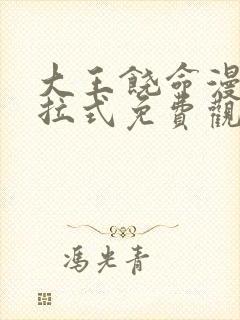 大王饶命漫
拉式免費觀
馮光青